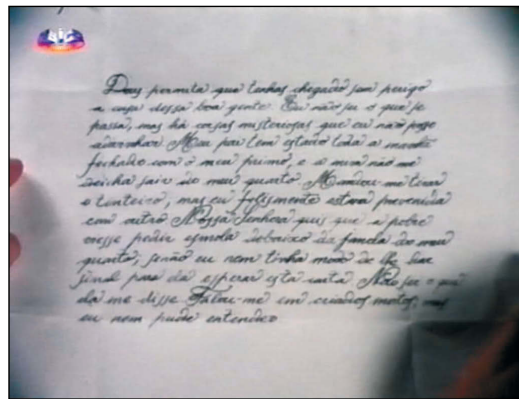 SIC
Deus permita que tenhas chegado sem perigo
a casa dessa boa gente. Eu não sei o que se
passa, mas há coisas misteriosas que eu não posso
adivinhar. Meu pai tem estado toda a manhã
fechado com o meu primo, e a mim não me
deixa sair do meu quarto. Mandou-me tirar
o tinteiro, mas eu felizmente estava prevenida
com outro. Nossa Senhora quis que a pobre
viesse pedir esmola debaixo da janela do meu
quarto; senão eu nem tinha modo de lhe dar
sinal para ela esperar esta carta. Não sei o que
ela me disse. Falou-me em criados mortos, mas
eu nem pude entender.